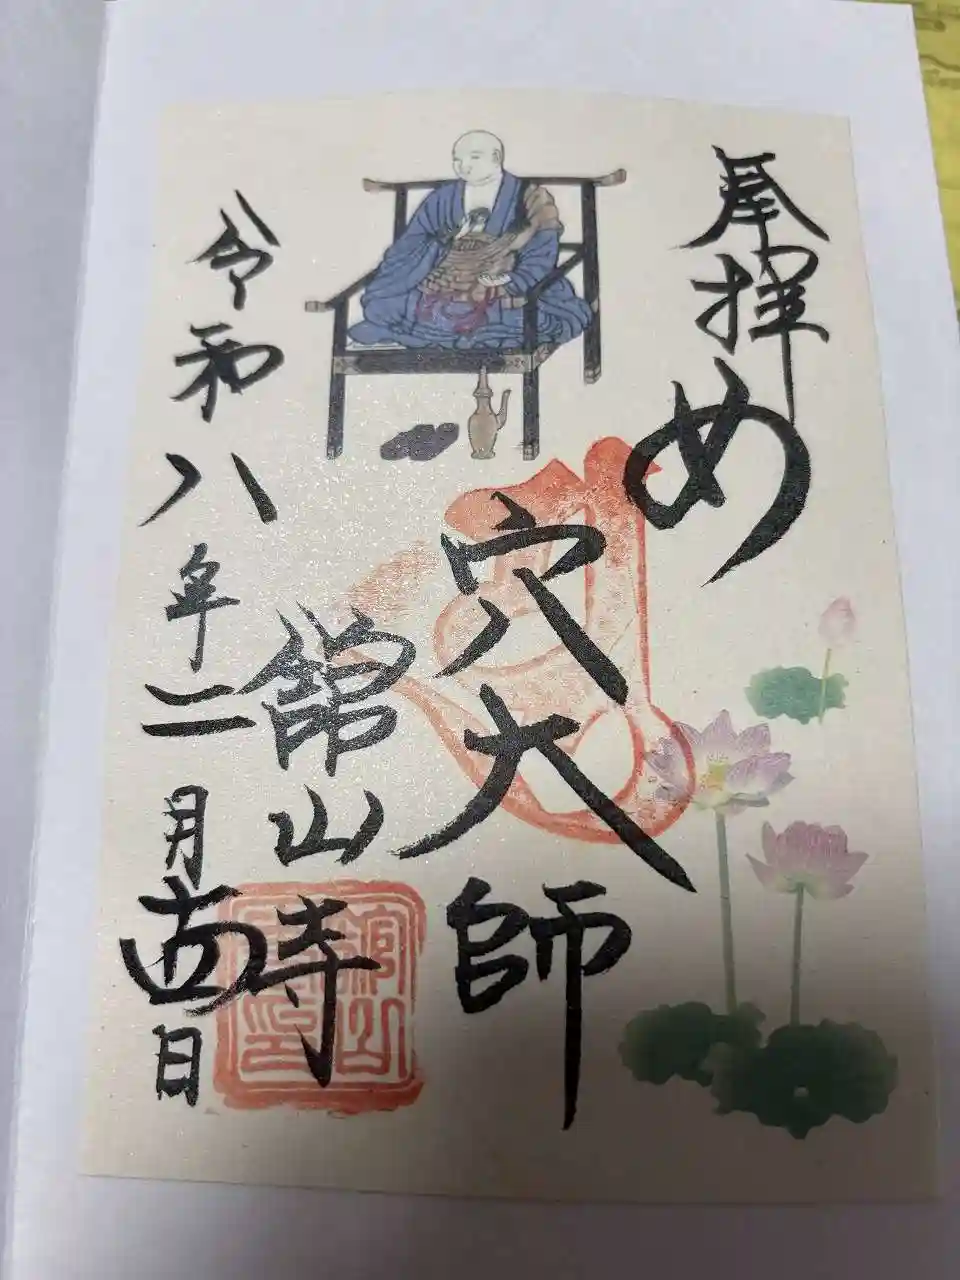 奉拝
め
穴大師
舘山寺
令和八年二月十四日